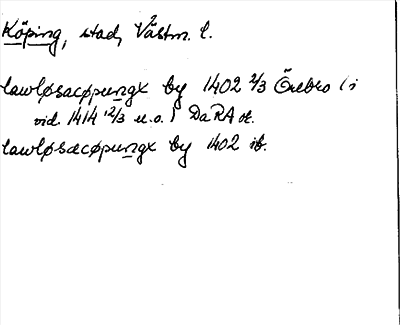 Köping, stad, Västm. l.
lawløsacøpungx by 1402 2/3 Örebro (i
vid. 1414 12/3 u.o.) DaRA or.
lawløsæcøpungx by 1402 ib.